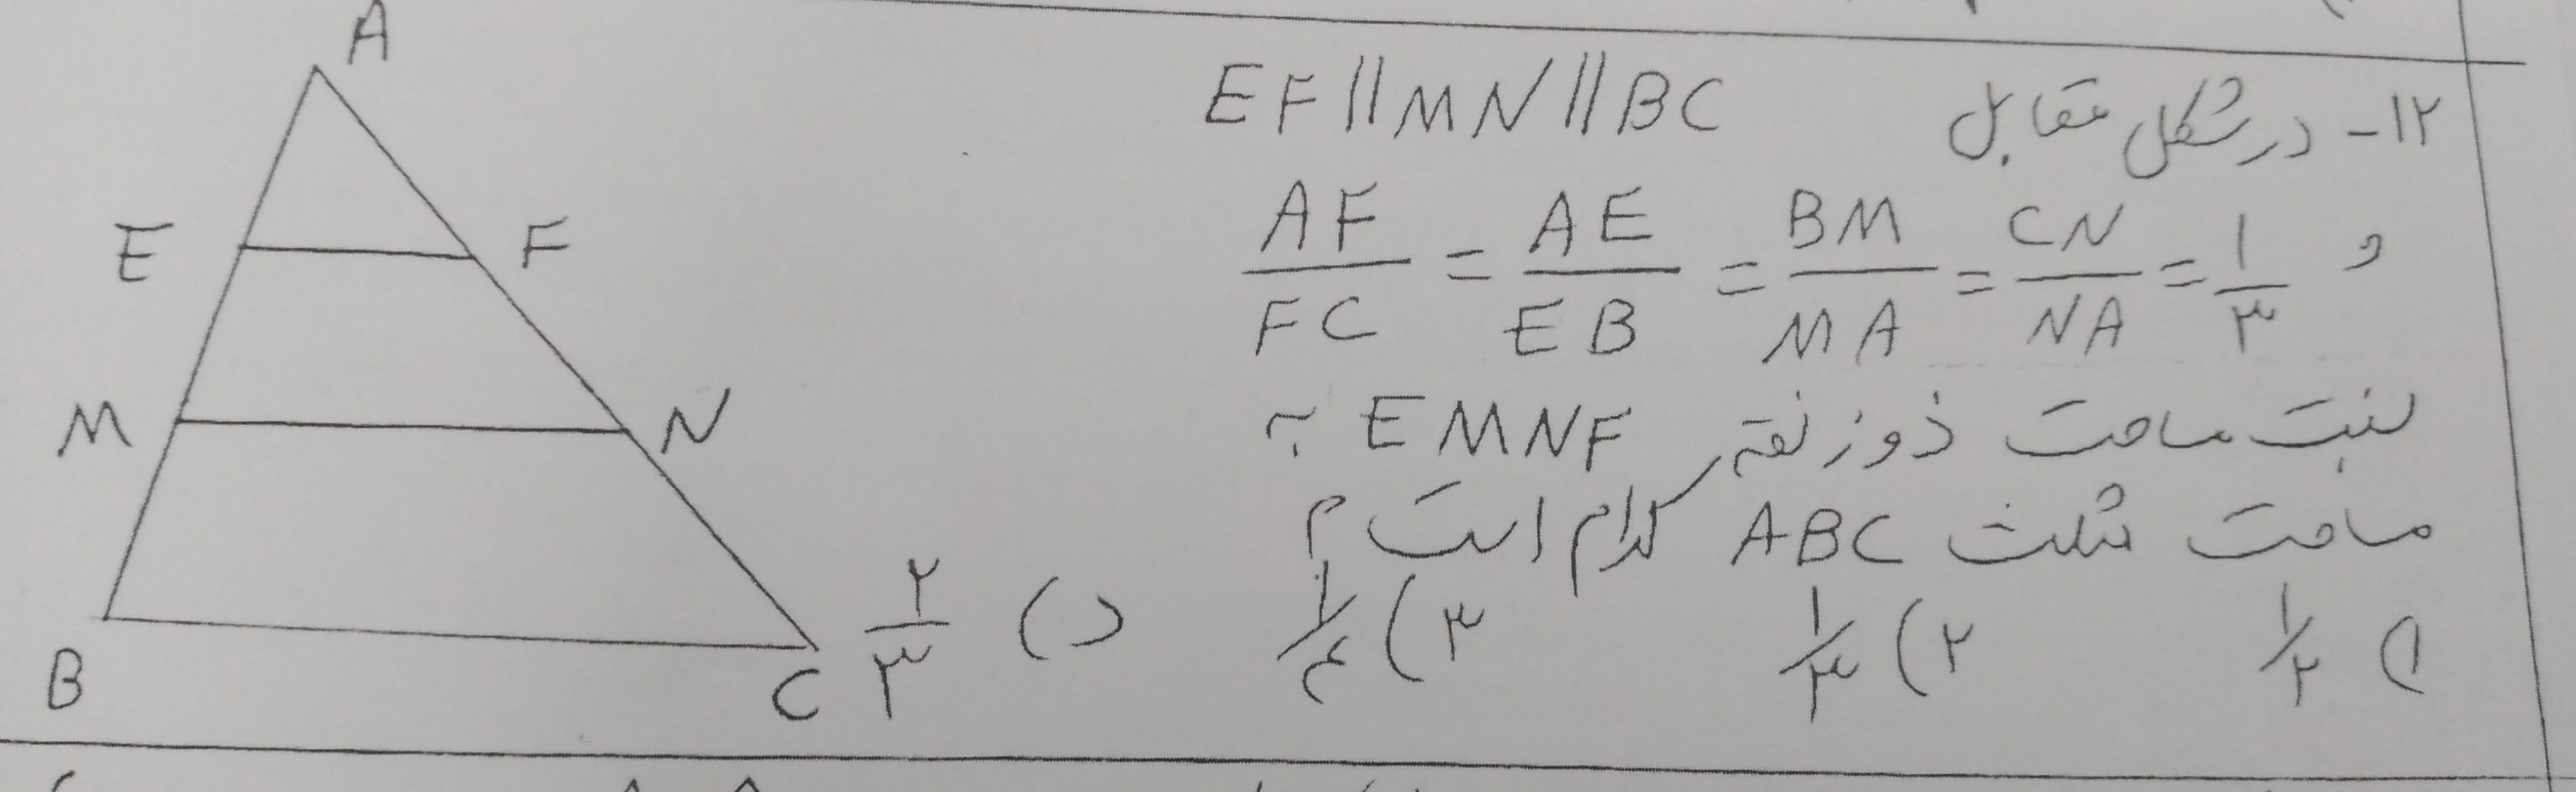 ۱۲- در شکل مقابل EF || MN || BC
و AF/FC = AE/EB = BM/MA = CN/NA = ۱/۳
نسبت مساحت ذوزنقه EMNF به
مساحت مثلث ABC کدام است ؟
۱) ۱/۲ ۲) ۱/۳ ۳) ۱/۴ د) ۲/۳
A
E F
M N
B C